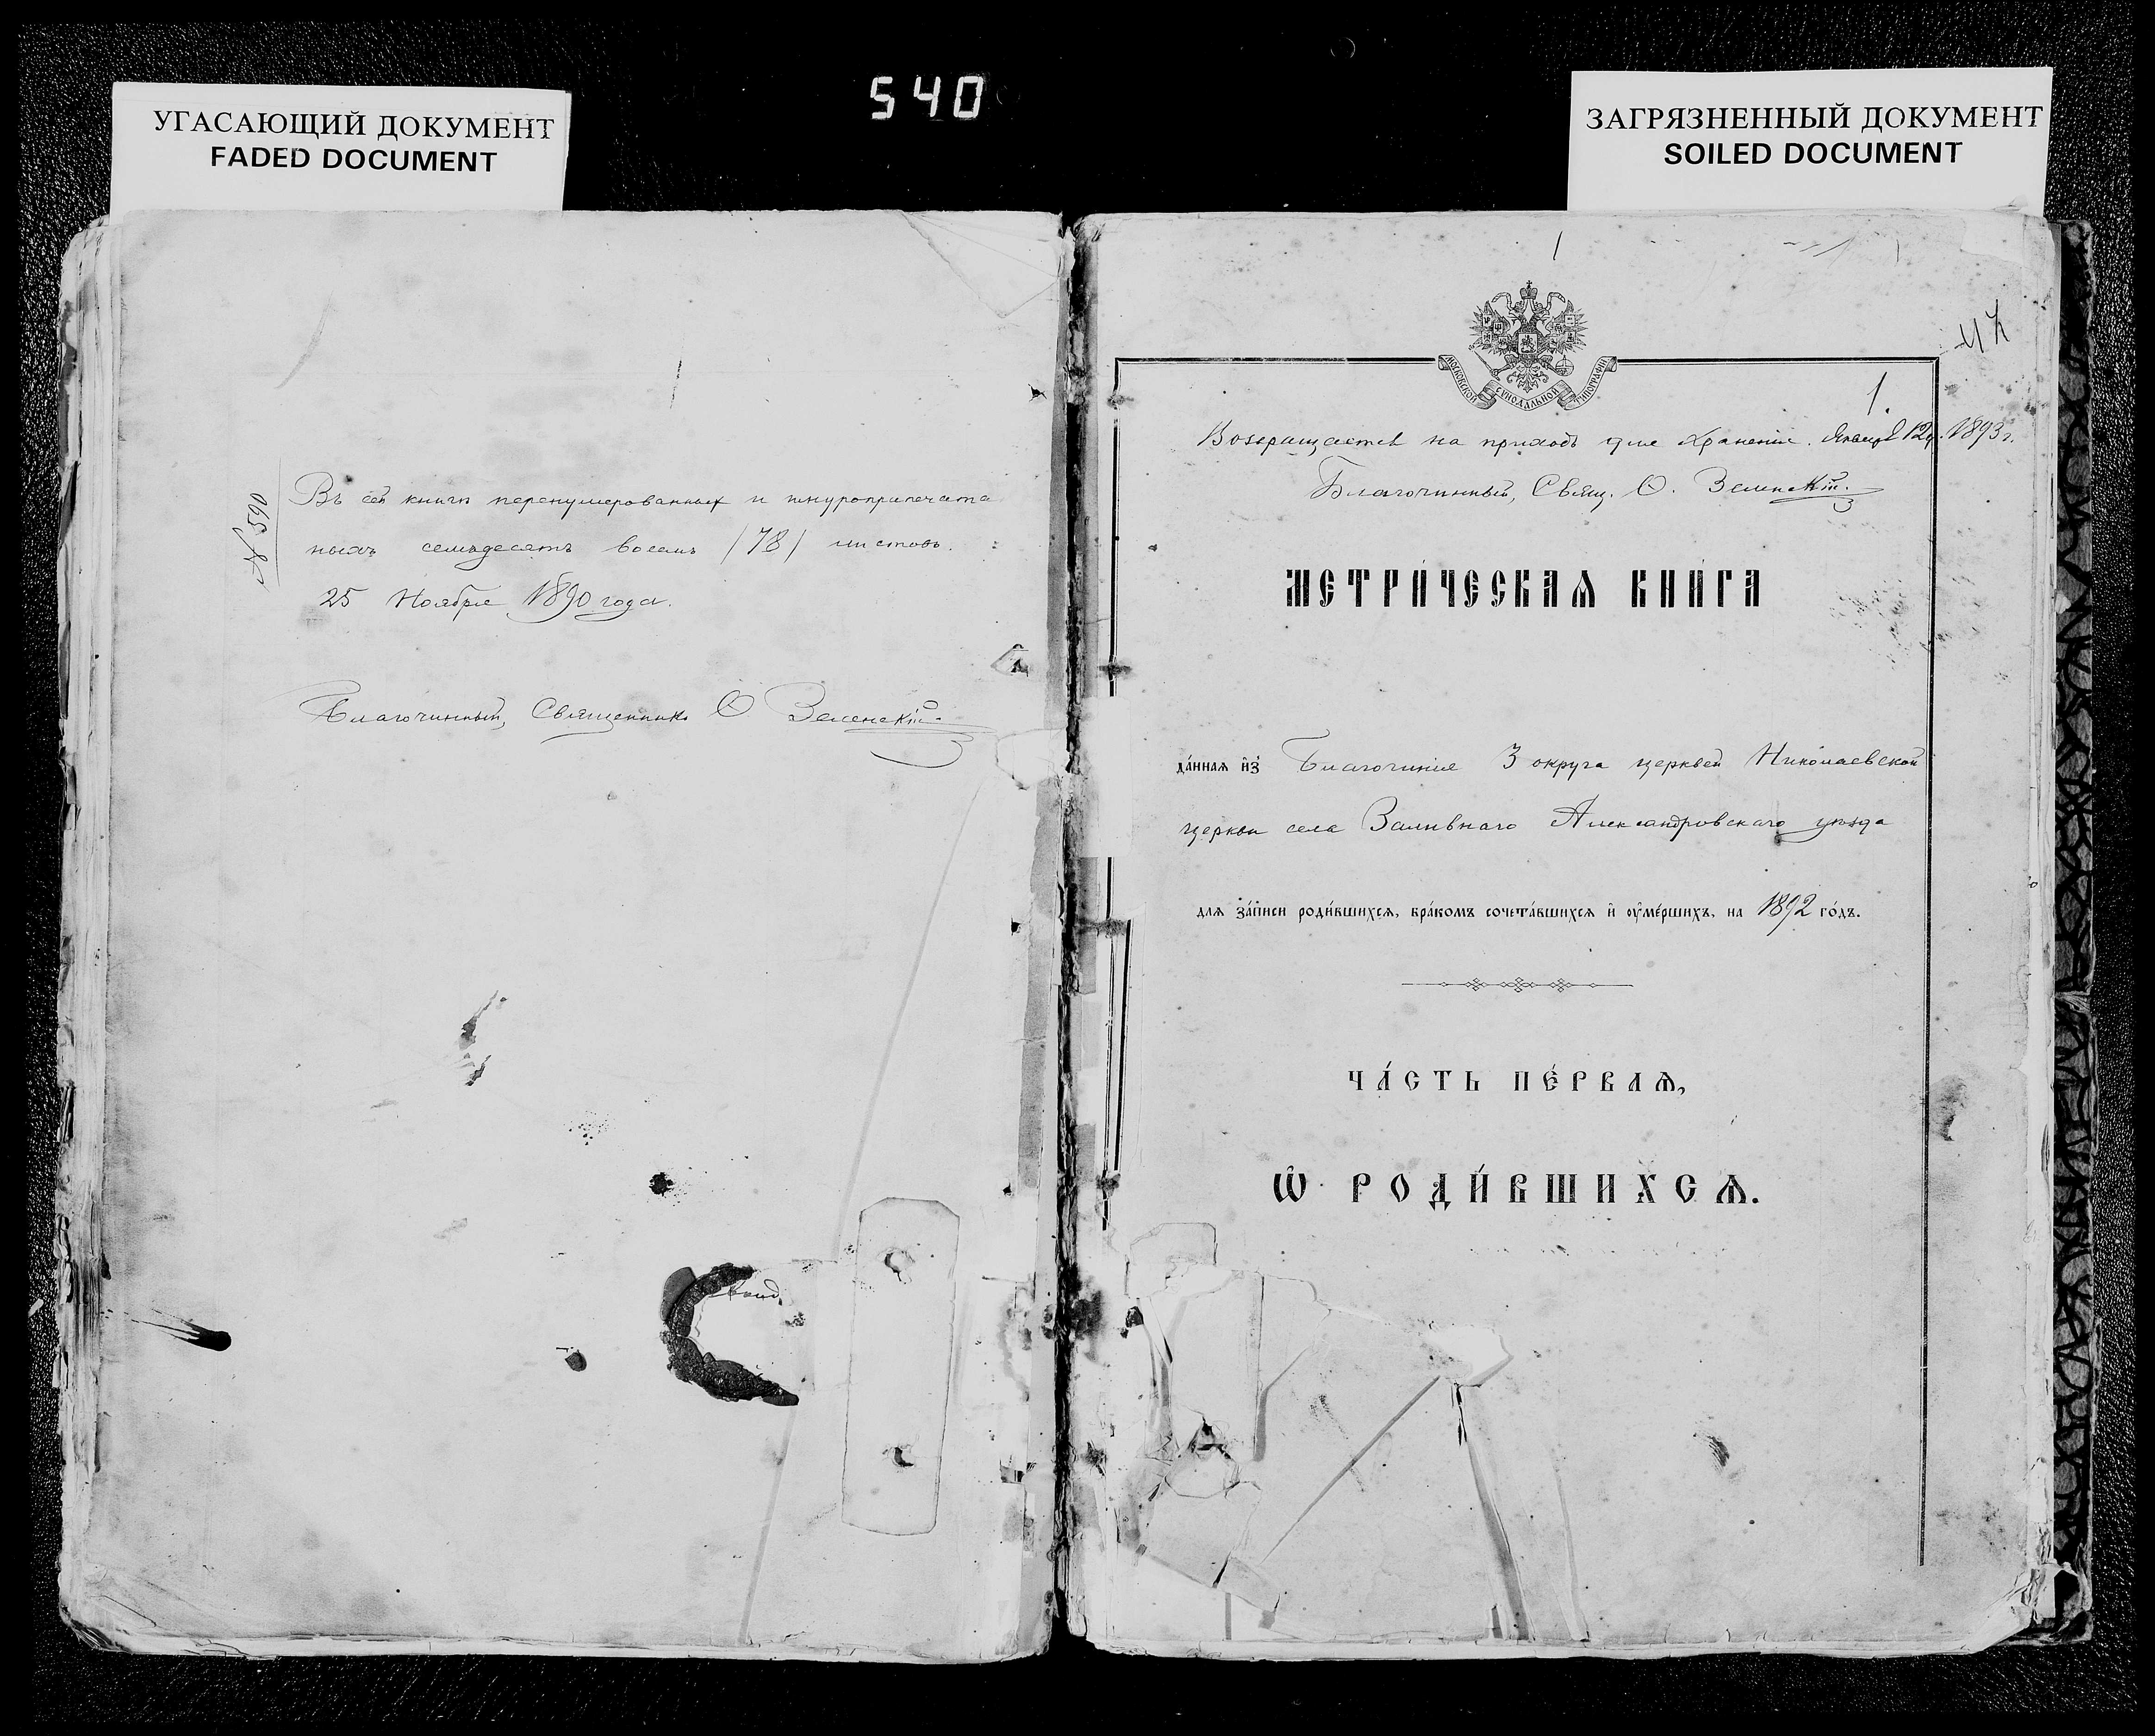 540
УГАСАЮЩИЙ ДОКУМЕНТ
FADED DOCUMENT
ЗАГРЯЗНЕННЫЙ ДОКУМЕНТ
SOILED DOCUMENT
№ 590
Въ сей книгѣ перенумерованныхъ и шнуроприпечатан
ныхъ семьдесятъ восемь /78/ листовъ.
25 Ноября 1890 года.
Благочинный, Священникъ Ѳ Зеленскій.
1
МОСКОВСКОЙ СѴНОДАЛЬНОЙ ТИПОГРАФІИ
1.
Возвращается на приходъ для храненія. Января 12 д. 1893 г.
Благочинный, Свящ. Ѳ. Зеленскій.
МЕТРИ́ЧЕСКАѦ КНИ́ГА
да́ннаѧ и҆з̾ Благочинія 3 округа церквей Николаевской
церкви села Заливнаго Александровскаго уѣзда
для за́писи роди́вшихсѧ, бра́комъ сочета́вшихсѧ и҆ ᲂу҆ме́ршихъ, на 1892 го́дъ.
ЧА́СТЬ ПЕ́РВАѦ,
Ѡ҆ РОДИ́ВШИХСѦ.